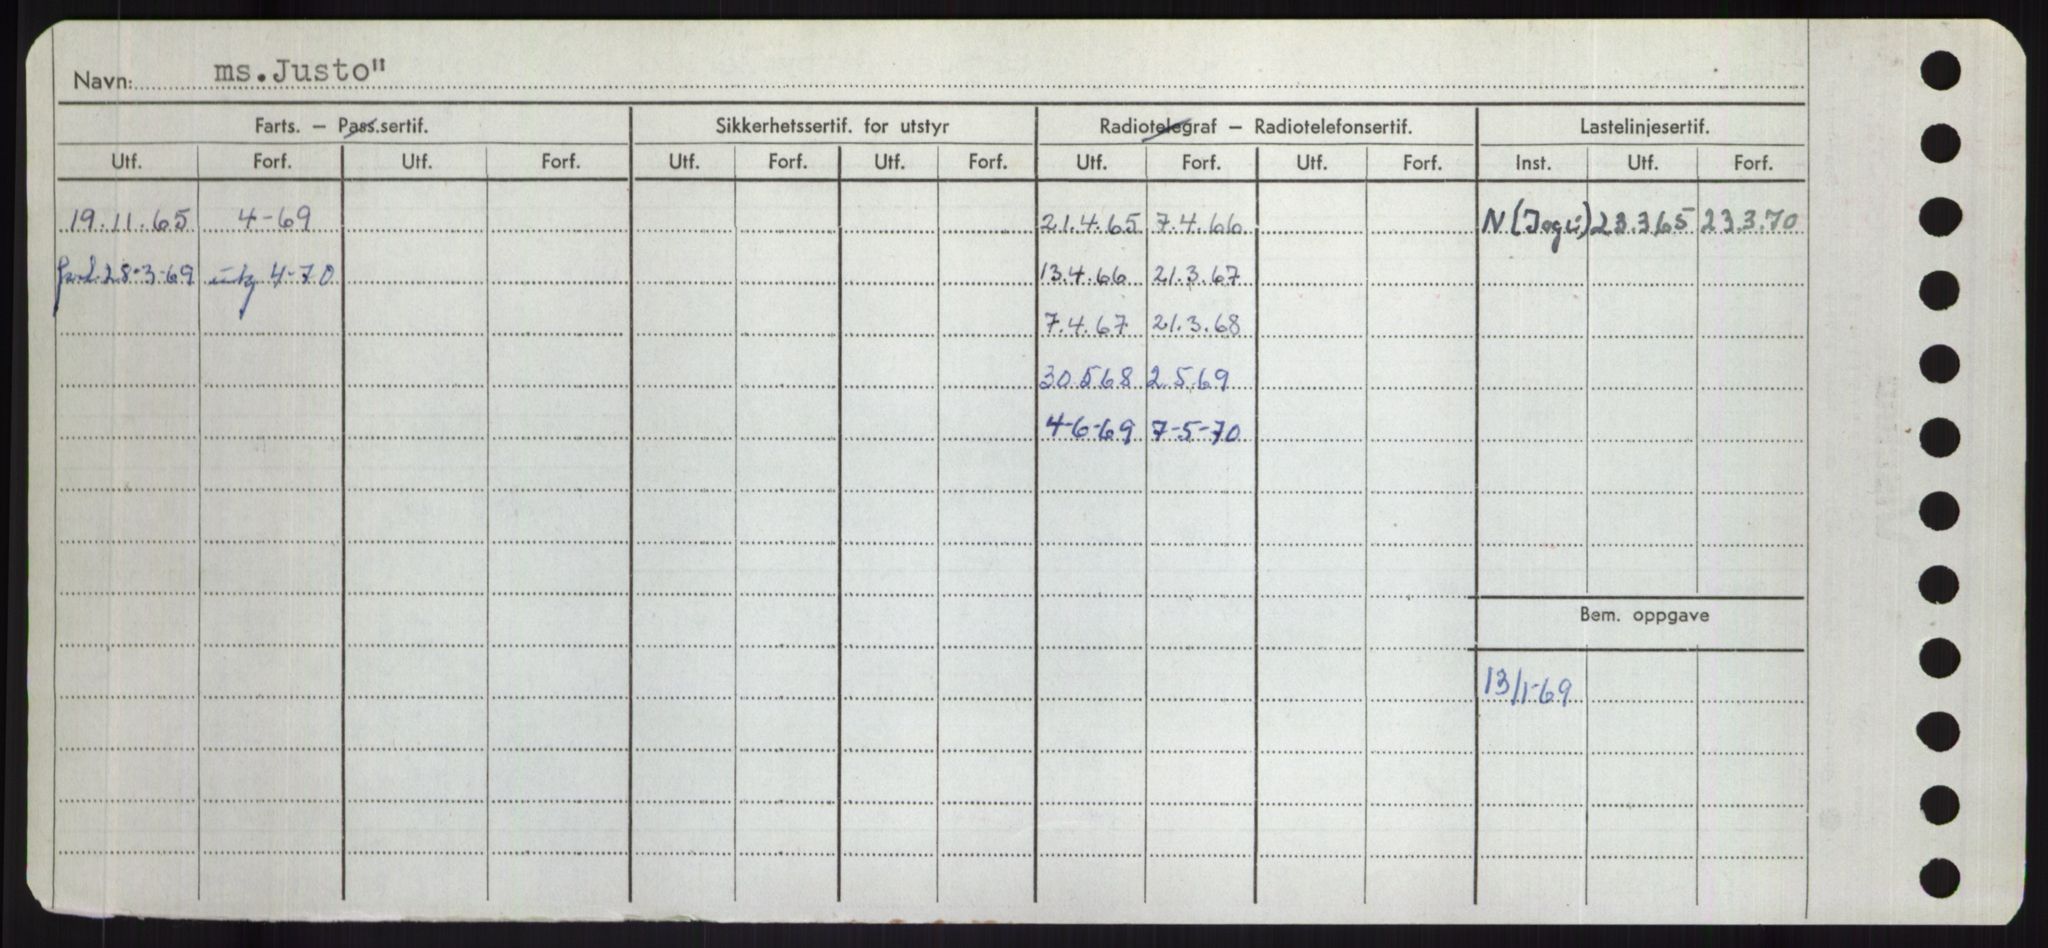 Navn: ms.Justo"
Farts. — Pass.sertif. Sikkerhetssertif. for utstyr Radiotelegraf — Radiotelefonsertif. Lastelinjesertif.
Utf. Forf. Utf. Forf. Utf. Forf. Utf. Forf. Utf. Forf. Utf. Forf. Inst. Utf. Forf.
19.11.65 4-69 21.4.65 7.4.66 N 23.3.65 23.3.70
28-3-69 4-70 13.4.66 21.3.67
7.4.67 21.3.68
30.5.68 2.5.69
4-6-69 7-5-70
Bem. oppgave
13/1-69